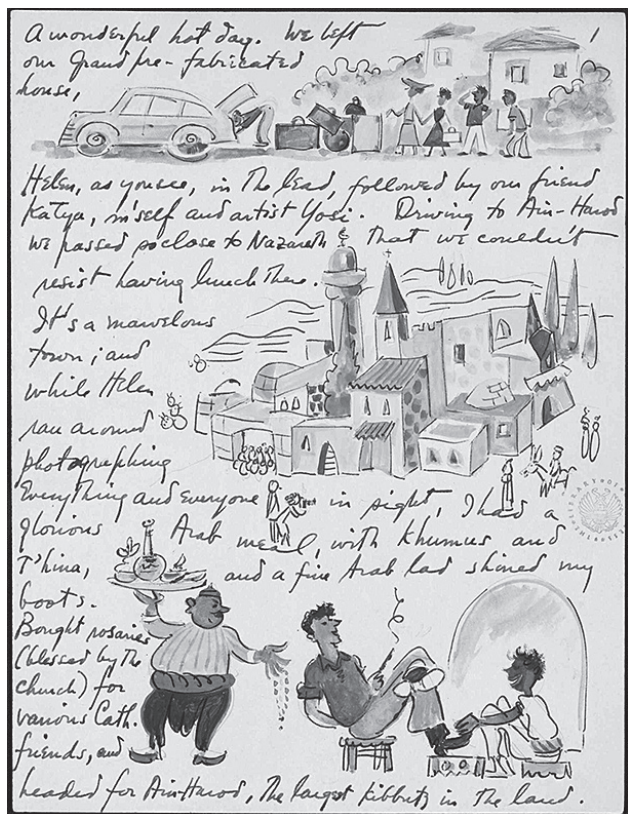 A wonderful hot day. We left
1
our Grand pre-fabricated
house,
Helen, as you see, in the lead, followed by our friend
Katya, m'self and artist Yosi. Driving to Ain-Harod
we passed so close to Nazareth that we couldn't
resist having lunch there.
It's a marvelous
town; and
while Helen
ran around
photographing
Everything and everyone in sight, I had a
glorious Arab meal, with Khumus and
T'hina, and a fine Arab lad shined my
boots.
Bought rosaries
(blessed by the
church) for
various Cath.
friends, and
headed for Ain-Harod, the largest kibbutz in the land.